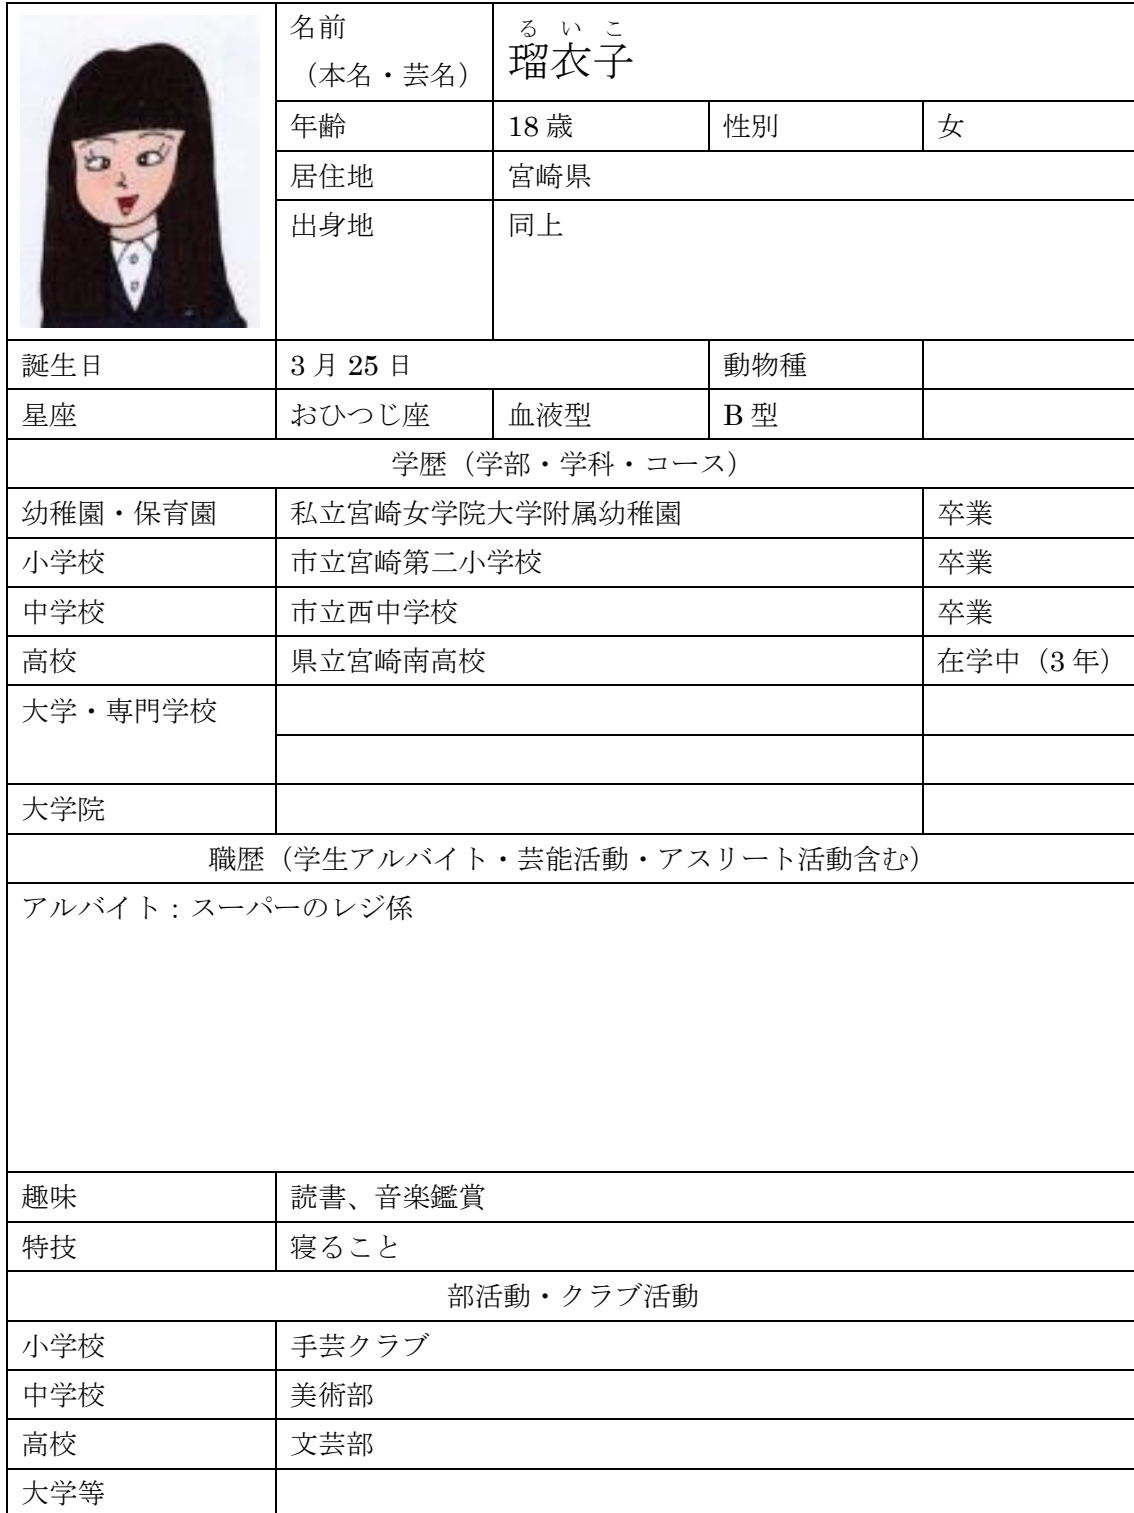 名前
（本名・芸名）
るいこ
瑠衣子
年齢 18歳 性別 女
居住地 宮崎県
出身地 同上
誕生日 3月25日 動物種
星座 おひつじ座 血液型 B型
学歴（学部・学科・コース）
幼稚園・保育園 私立宮崎女学院大学附属幼稚園 卒業
小学校 市立宮崎第二小学校 卒業
中学校 市立西中学校 卒業
高校 県立宮崎南高校 在学中（3年）
大学・専門学校
大学院
職歴（学生アルバイト・芸能活動・アスリート活動含む）
アルバイト：スーパーのレジ係
趣味 読書、音楽鑑賞
特技 寝ること
部活動・クラブ活動
小学校 手芸クラブ
中学校 美術部
高校 文芸部
大学等